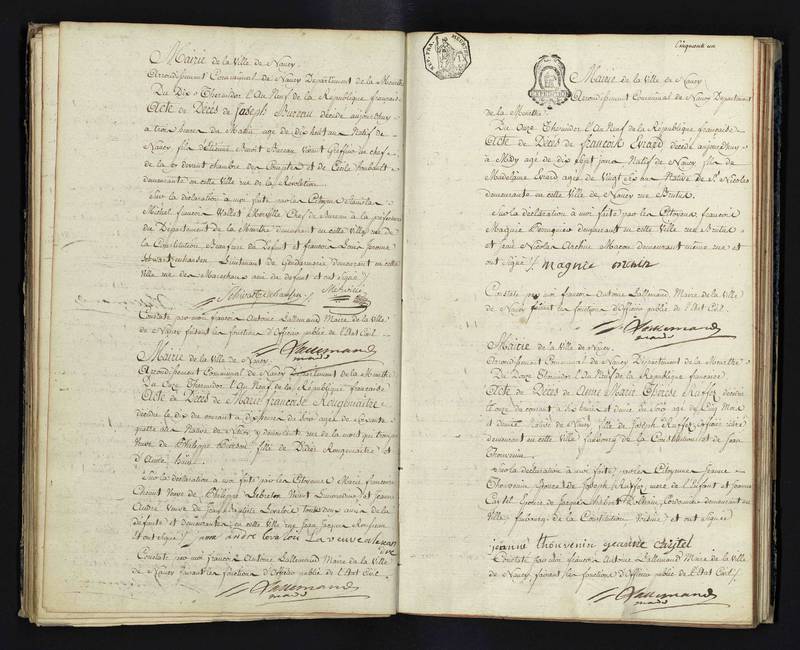 Mairie de la Ville de Nancy.
Arrondissement Communal de Nancy Département de la Meurthe
Du Dix Thermidor l'An Neuf de la République française
Acte de Décès de Joseph Bureau décédé aujourd'huy
à trois heures du Matin âgé de dix huit ans Natif de
Nancy fils de Benoit Bureau vivant Greffier en chef
de la devant chambre des Comptes et de Cécile
demeurante en cette Ville rue de la Révolution
Sur la déclaration à moi faite par les Citoyens Stanislas
Michel françois Vallet Merville Chef de bureau à la préfecture
du Département de la Meurthe demeurant en cette Ville rue de
la Constitution, du Défunt et françois Louis
Schwartzenhausen Lieutenant de Gendarmerie demeurant en cette
Ville rue des Maréchaux ami du défunt et ont signé
Merville
Constaté par moi françois Antoine Lallemand Maire de la Ville
de Nancy faisant les fonctions d'Officier public de l'Etat Civil.
Lallemand
maire
Mairie de la Ville de Nancy.
Arrondissement Communal de Nancy Département de la Meurthe
Du Onze Thermidor l'An Neuf de la République française
Acte de Décès de Marie françoise Rougemaitre
décédée le dix du courant à dix heures du Soir âgée de Soixante
quatre ans Native de Nancy y demeurant, rue de la
Veuve de Philippe fille de Didier Rougemaitre et
d'Anne
Sur la déclaration à moi faite par les Citoyennes Marie françoise
Veuve de Lebreton et Jeanne
André Veuve de Jean Baptiste Lavaloi toutes deux amies de la
défunte et demeurantes en cette Ville rue Jean Jacques Rousseau
et ont signé andre lavaloi La veuve
Constaté par moi françois Antoine Lallemand Maire de la Ville
de Nancy faisant les fonctions d'Officier public de l'Etat Civil.
Lallemand
maire
Cinquante un
Mairie de la Ville de Nancy
Arrondissement Communal de Nancy Département
de la Meurthe.
Du Onze Thermidor l'An Neuf de la République française
Acte de Décès de françois Evrard décédé aujourd'huy
à Midy âgé de dix sept jours Natif de Nancy fils de
Madelaine Evrard âgée de Vingt Six ans Native de St. Nicolas
demeurante en cette Ville de Nancy rue
Sur la déclaration à moi faite par les Citoyens françois
Magnié demeurant en cette Ville rue
et Jean Nicolas Maçon demeurant même rue et
ont signé magnié
Constaté par moi françois Antoine Lallemand Maire de la Ville
de Nancy faisant les fonctions d'Officier public de l'Etat Civil.
Lallemand
maire
Mairie de la Ville de Nancy.
Arrondissement Communal de Nancy Département de la Meurthe
Du Douze Thermidor l'An Neuf de la République française
Acte de Décès de Anne Marie Thérèse Kuffer décédée
le onze du courant à Six heures et demie du Soir âgée de Cinq Mois
et demie Native de Nancy fille de Joseph Kuffer
demeurant en cette Ville faubourg de la Constitution et de Jeanne
Thouvenin.
Sur la déclaration à moi faite par les Citoyennes Jeanne
Thouvenin Epouse de Joseph Kuffer mère de l'Enfant et Jeanne
Cartel Epouse de Jacques demeurant en
Ville faubourg de la Constitution voisine et ont signé
jeanne thouvenin
Constaté par moi françois Antoine Lallemand Maire de la Ville
de Nancy faisant les fonctions d'Officier public de l'Etat Civil.
Lallemand
maire